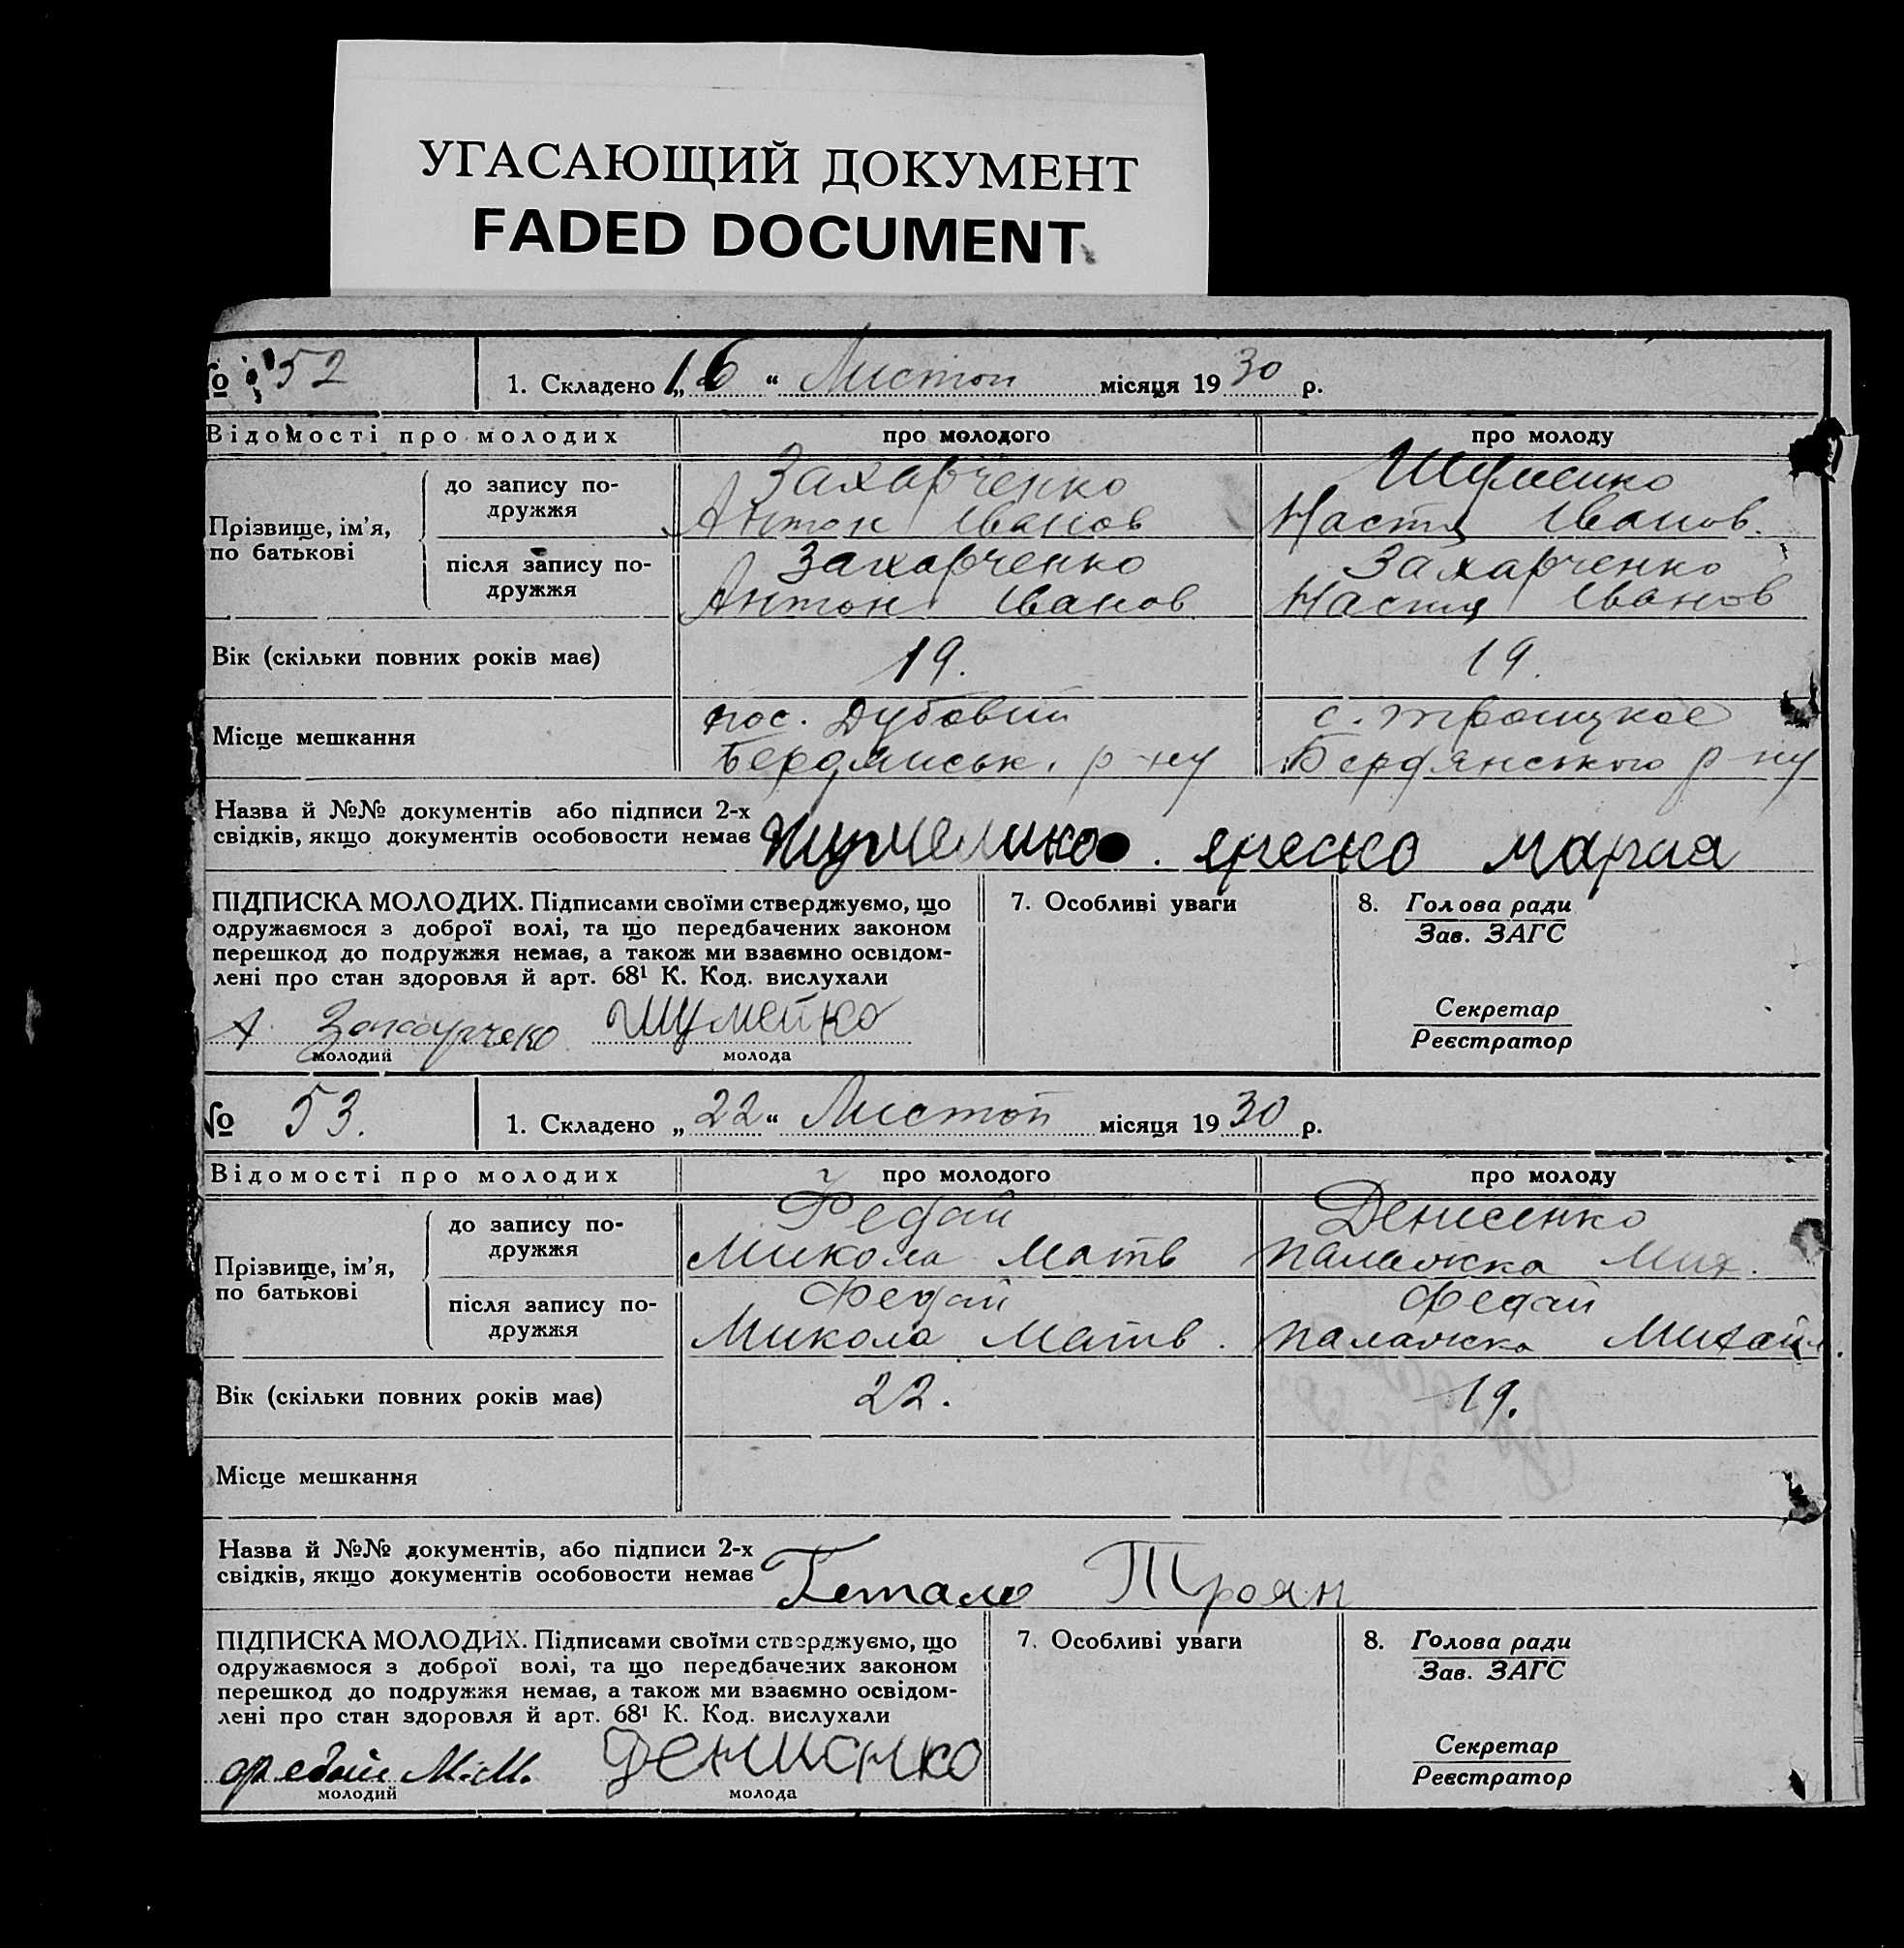 УГАСАЮЩИЙ ДОКУМЕНТ
FADED DOCUMENT
№ 52
1. Складено „16“ Листоп місяця 1930 р.
Відомості про молодих про молодого про молоду
Прізвище, ім’я, по батькові
до запису подружжя
Захарченко
Антон Іванов
Шумейко
Настя Іванов.
після запису подружжя
Захарченко
Антон Іванов
Захарченко
Настя Іванов
Вік (скільки повних років має) 19. 19.
Місце мешкання
пос. Дубовий
Бердянськ. р-ну
с. Троицкое
Бердянського р-ну
Назва й №№ документів або підписи 2-х
свідків, якщо документів особовости немає
Мария
ПІДПИСКА МОЛОДИХ. Підписами своїми стверджуємо, що
одружаємося з доброї волі, та що передбачених законом
перешкод до подружжя немає, а також ми взаємно освідом-
лені про стан здоровля й арт. 68¹ К. Код. вислухали
А. Захарчеко Шумейко
молодий молода
7. Особливі уваги
8. Голова ради
Зав. ЗАГС
Секретар
Реєстратор
№ 53.
1. Складено „22“ Листоп місяця 1930 р.
Відомості про молодих про молодого про молоду
Прізвище, ім’я, по батькові
до запису подружжя
Федай
Микола Матв
Денисенко
Палажка Мих.
після запису подружжя
Федай
Микола Матв.
Федай
Палажка Михайл.
Вік (скільки повних років має) 22. 19.
Місце мешкання
Назва й №№ документів, або підписи 2-х
свідків, якщо документів особовости немає
Троян
ПІДПИСКА МОЛОДИХ. Підписами своїми стверджуємо, що
одружаємося з доброї волі, та що передбачених законом
перешкод до подружжя немає, а також ми взаємно освідом-
лені про стан здоровля й арт. 68¹ К. Код. вислухали
Федай М.М. Денисенко
молодий молода
7. Особливі уваги
8. Голова ради
Зав. ЗАГС
Секретар
Реєстратор